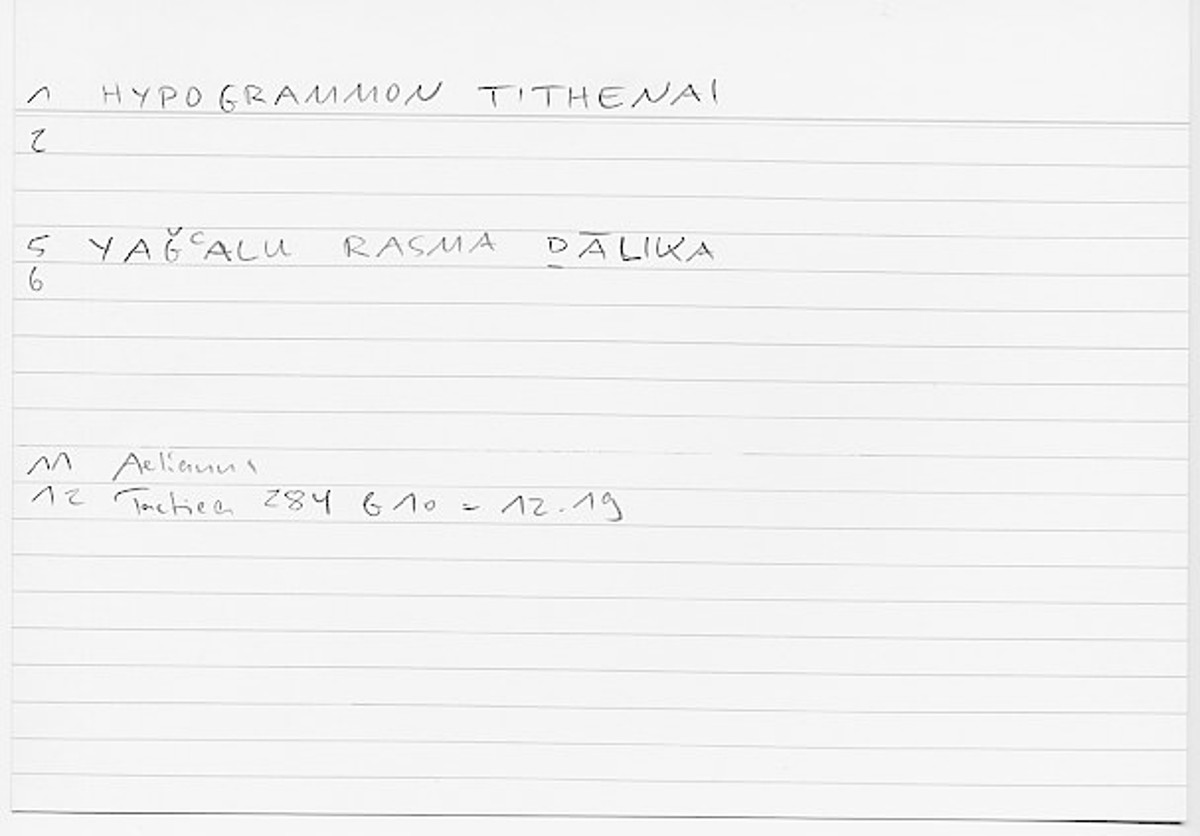 1 HYPOGRAMMON TITHENAI
2
5 YAǦʿALU RASMA ḎĀLIKA
6
11 Aelianus
12 Tactica 284 G 10 = 12.19